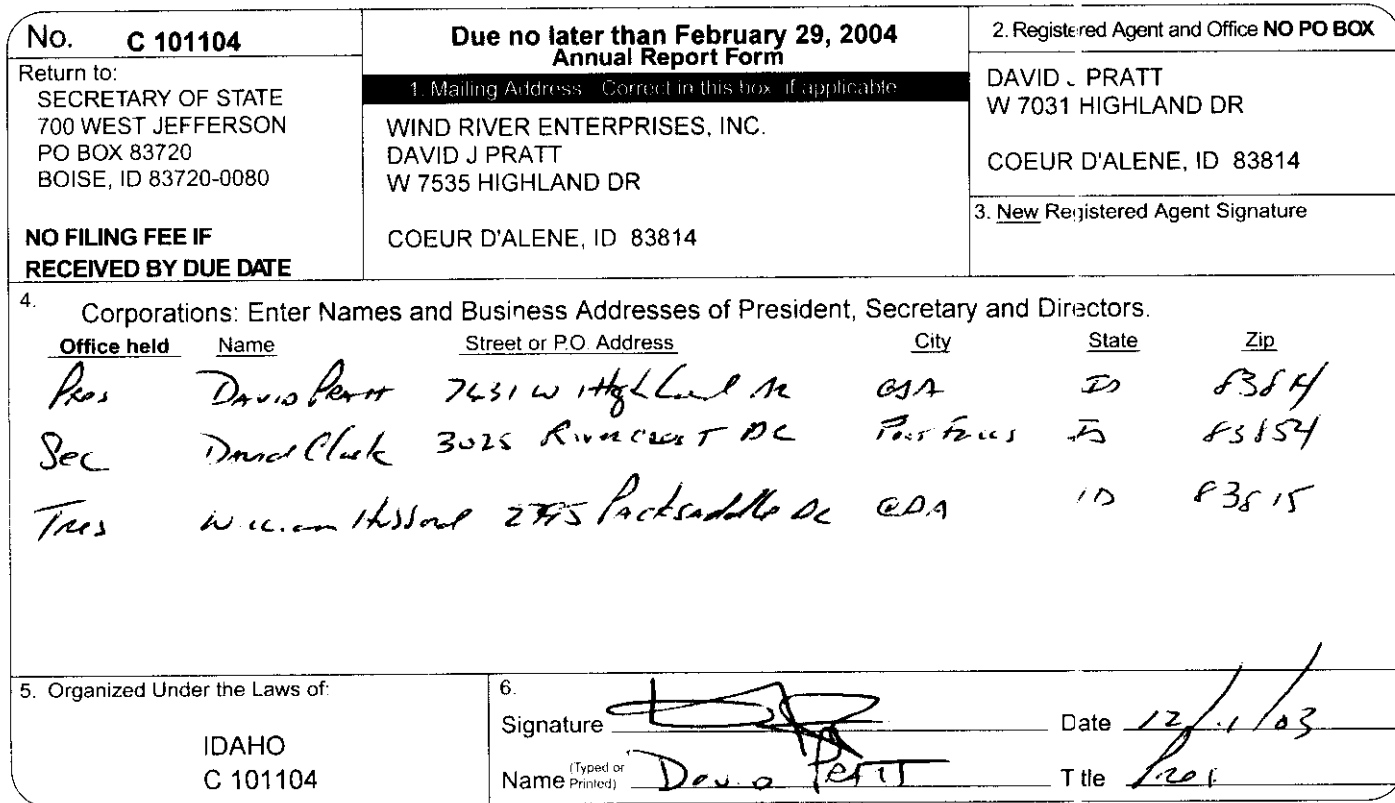 No. C 101104
Return to:
SECRETARY OF STATE
700 WEST JEFFERSON
PO BOX 83720
BOISE, ID 83720-0080
NO FILING FEE IF
RECEIVED BY DUE DATE
Due no later than February 29, 2004
Annual Report Form
1. Mailing Address Correct in this box if applicable
WIND RIVER ENTERPRISES, INC.
DAVID J PRATT
W 7535 HIGHLAND DR
COEUR D'ALENE, ID 83814
2. Registered Agent and Office NO PO BOX
DAVID J PRATT
W 7031 HIGHLAND DR
COEUR D'ALENE, ID 83814
3. New Registered Agent Signature
4. Corporations: Enter Names and Business Addresses of President, Secretary and Directors.
Office held Name Street or P.O. Address City State Zip
Pres David Pratt W Highland Dr CDA ID 83814
Sec David Clark 3025 Rivercrest Dr Post Falls ID 83854
Tres William Packsaddle Dr CDA ID 83815
5. Organized Under the Laws of:
IDAHO
C 101104
6.
Signature Date 12/1/03
Name (Typed or Printed) David Pratt Title Pres